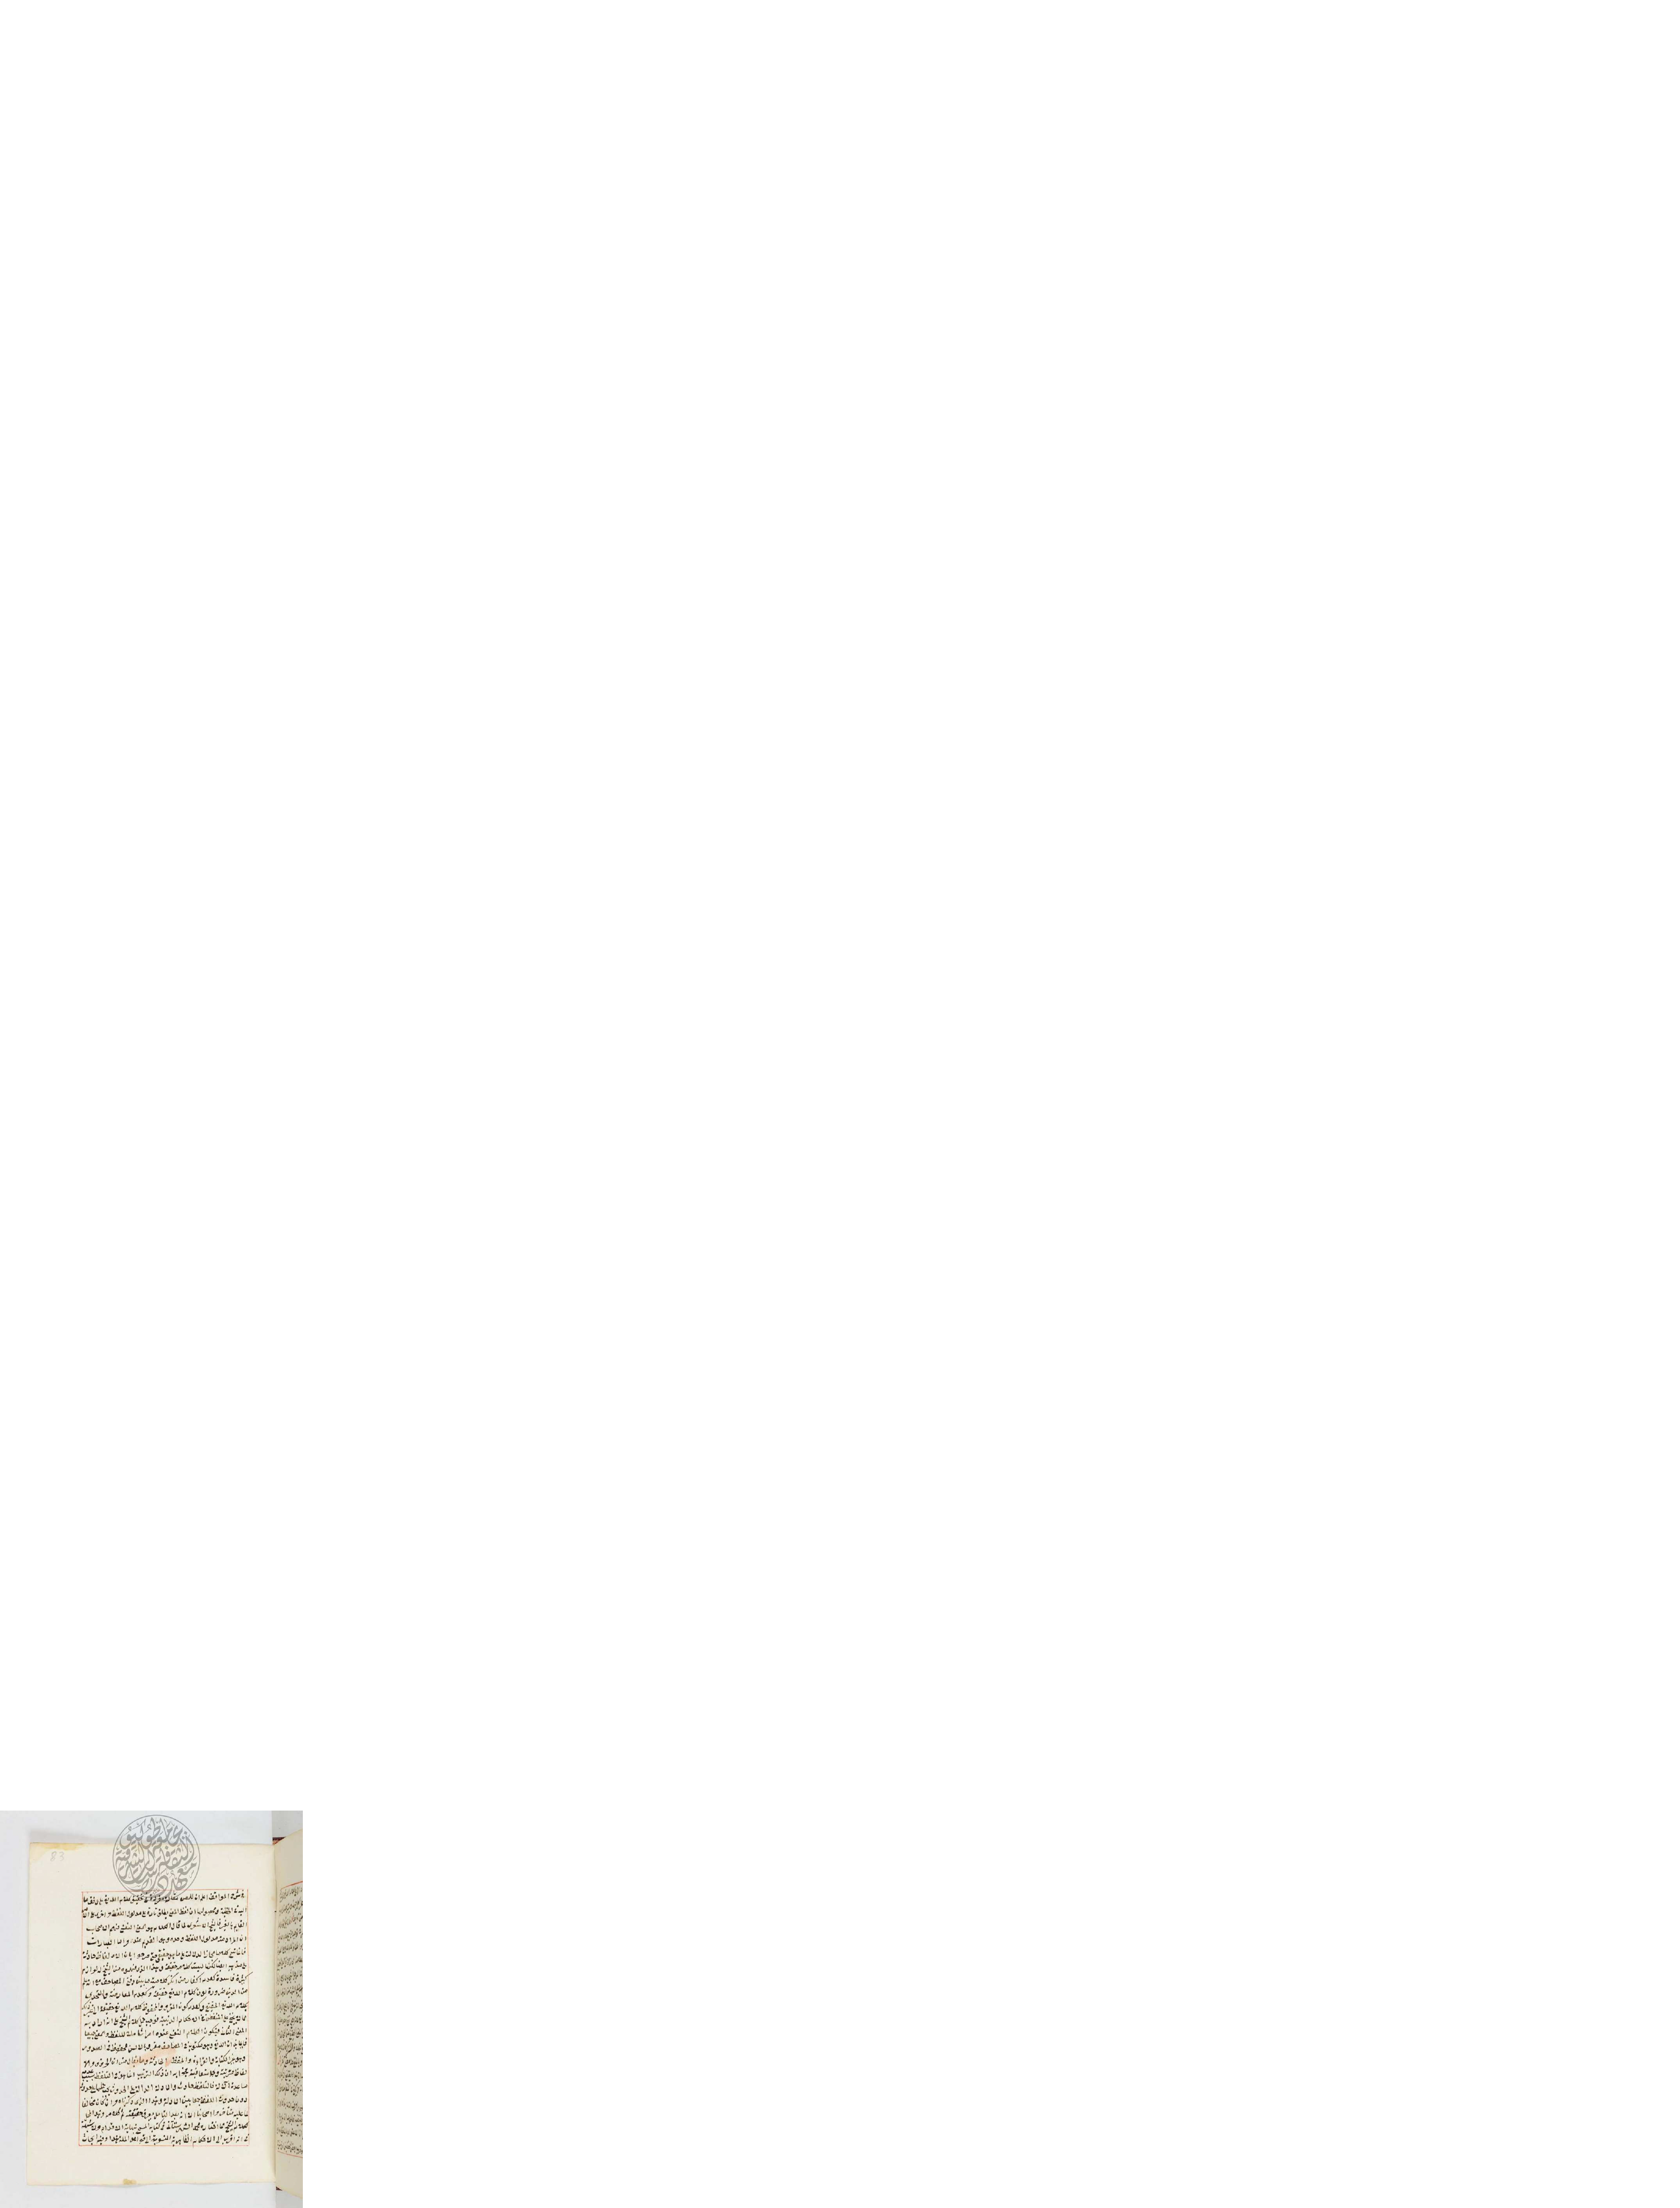 شرح المواقف اعلم ان للمصنف مقالة مفردة في تحقيق كلام الله تعالى على وفق ما
ومحصولها ان لفظ المعنى يطلق تارة على مدلول اللفظ واخرى على الامر
القائم بالغير فالشيخ الاشعري لما قال الكلام هو المعنى النفسي فهم الاصحاب
ان المراد منه مدلول اللفظ وحده وهو القديم عنده واما العبارات
فانما تسمى كلاما مجازا لدلالته على ما هو حقيقي حتى صرحوا بان الالفاظ حادثة
على مذهبه ايضا لكنها ليست كلامه حقيقة وهذا الذي فهموه من الشيخ له لوازم
كثيرة فاسدة كعدم اكفار من انكر كلامية ما بين دفتي المصاحف مع انه علم
من الدين ضرورة كونه كلام الله تعالى حقيقة وكعدم المعارضة والتحدي
بكلام الله تعالى الحقيقي وكعدم كون المقروء والمحفوظ كلام الله تعالى حقيقة الى غير ذلك
مما لا يخفى على فوجب حمل كلام الشيخ على انه اراد به
المعنى الثاني فيكون الكلام النفسي عنده امرا شاملا للفظ والمعنى جميعا
قائما بذات الله تعالى وهو مكتوب في المصاحف مقروء بالالسن محفوظ في الصدور
وهو غير الكتابة والقراءة والحفظ الحادثة وما يقال من ان الحروف و
الفاظ مترتبة متعاقبة فجوابه ان ذلك الترتب انما هو في التلفظ بسبب
مساعدة الآلة فالتلفظ حادث والادلة الدالة على الحدوث يجب حملها على حدوثه
دون حدوث اللفظ جمعا بين الادلة وهذا الذي ذكرناه وان كان مخالفا
لما عليه متأخروا اصحابنا الا انه بعد التأمل يعرف حقيقته تم كلامه وهذا المحمل
لكلام الشيخ مما اختاره محمد الشهرستاني في كتابه المسمى بنهاية الاقدام ولا شبهة
في انه اقرب الى الاحكام الظاهرية المنسوبة الى قواعد الملة